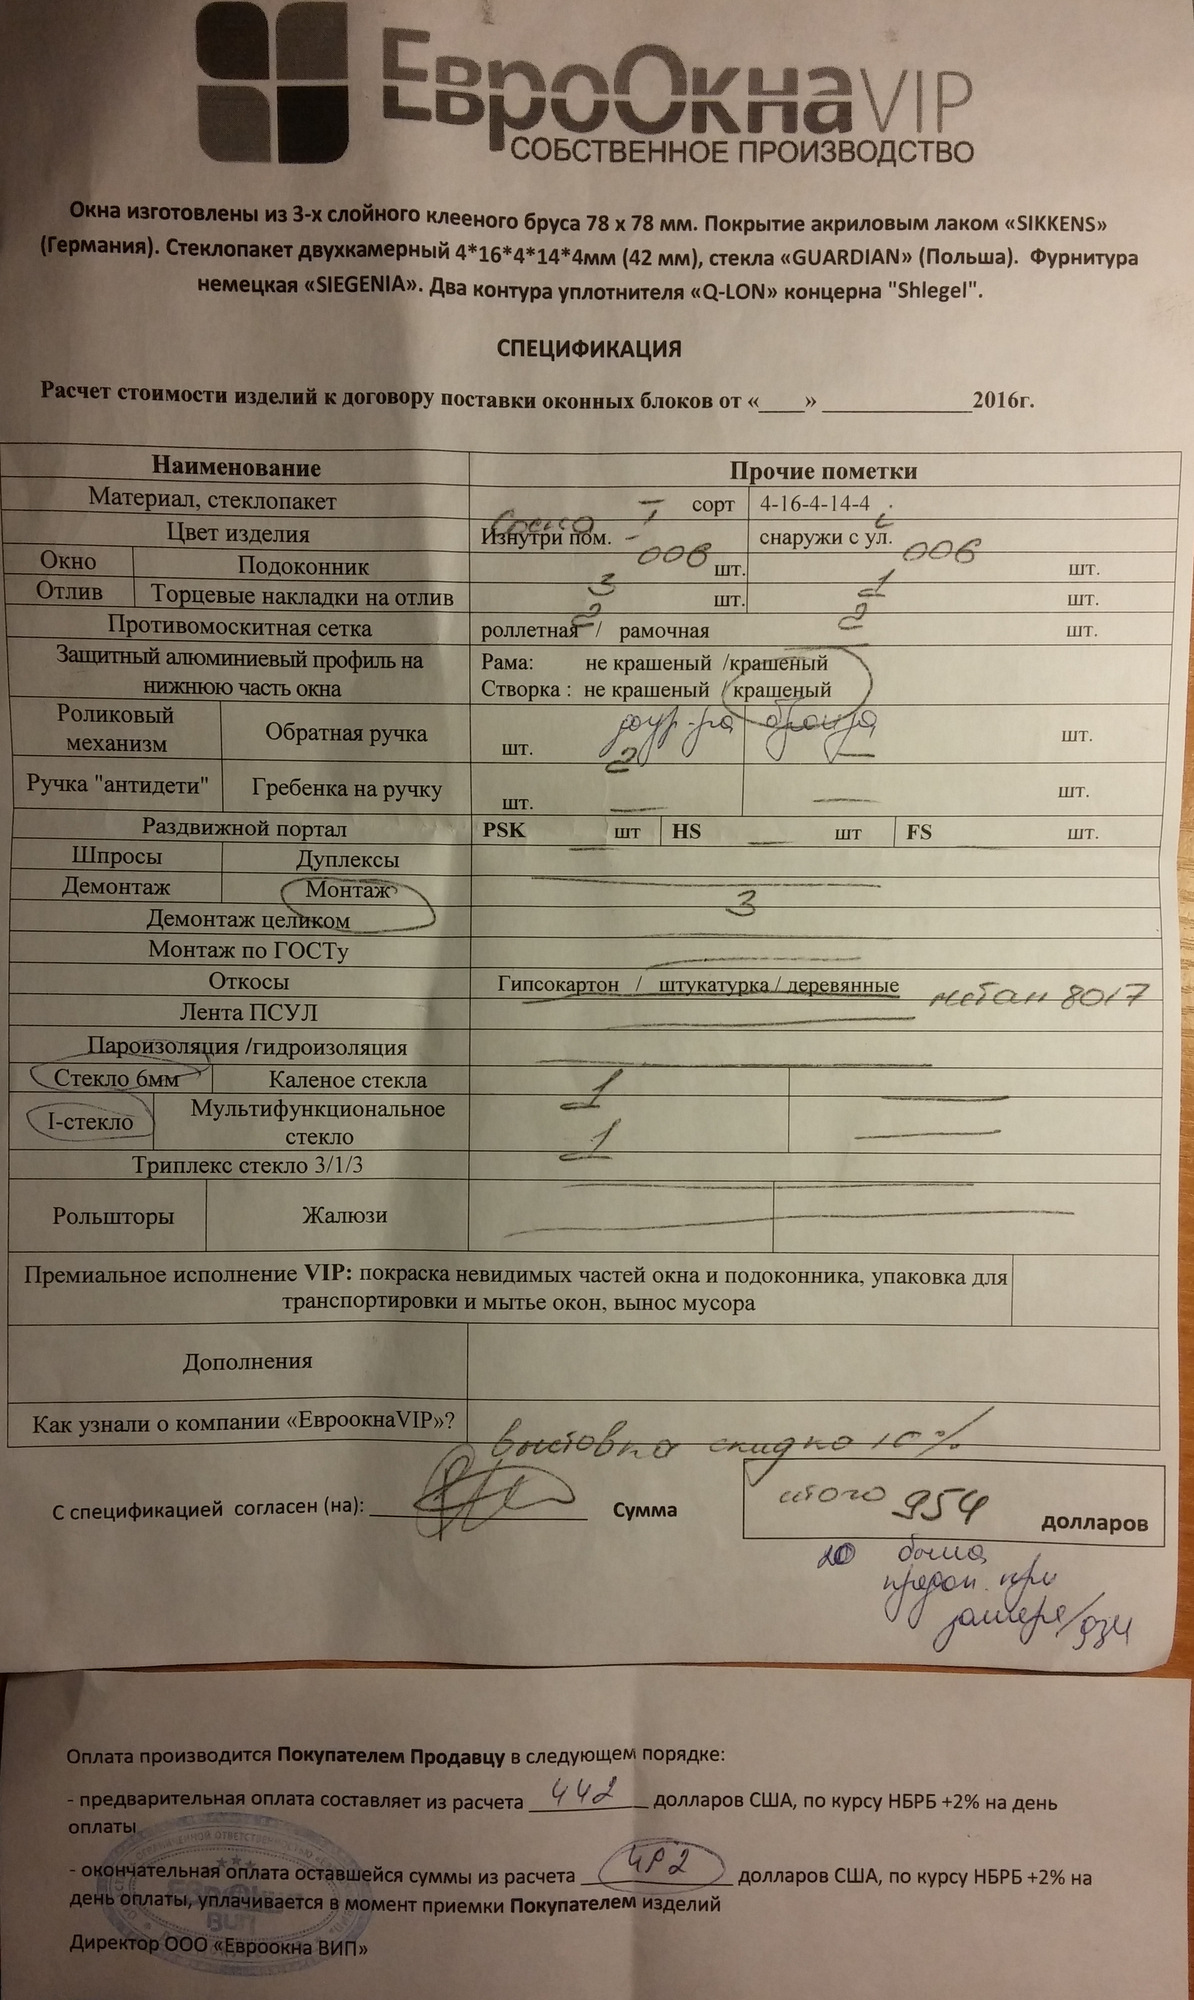 ЕвроОкнаVIP
СОБСТВЕННОЕ ПРОИЗВОДСТВО
Окна изготовлены из 3-х слойного клееного бруса 78 х 78 мм. Покрытие акриловым лаком «SIKKENS»
(Германия). Стеклопакет двухкамерный 4*16*4*14*4мм (42 мм), стекла «GUARDIAN» (Польша). Фурнитура
немецкая «SIEGENIA». Два контура уплотнителя «Q-LON» концерна "Shlegel".
СПЕЦИФИКАЦИЯ
Расчет стоимости изделий к договору поставки оконных блоков от «____» _____________2016г.
Наименование Прочие пометки
Материал, стеклопакет Сосна I сорт 4-16-4-14-4
Цвет изделия Изнутри пом. - 006 снаружи с ул. 006
Окно Подоконник 3 шт. 1 шт.
Отлив Торцевые накладки на отлив 2 шт. 2 шт.
Противомоскитная сетка роллетная / рамочная шт.
Защитный алюминиевый профиль на нижнюю часть окна
Рама: не крашеный /крашеный
Створка : не крашеный /крашеный
Роликовый механизм Обратная ручка шт. 2 бронза шт.
Ручка "антидети" Гребенка на ручку шт. шт.
Раздвижной портал PSK шт HS шт FS шт.
Шпросы Дуплексы
Демонтаж Монтаж 3
Демонтаж целиком
Монтаж по ГОСТу
Откосы Гипсокартон / штукатурка / деревянные метал 8017
Лента ПСУЛ
Пароизоляция /гидроизоляция
Стекло 6мм Каленое стекла 1
I-стекло Мультифункциональное стекло 1
Триплекс стекло 3/1/3
Рольшторы Жалюзи
Премиальное исполнение VIP: покраска невидимых частей окна и подоконника, упаковка для
транспортировки и мытье окон, вынос мусора
Дополнения
Как узнали о компании «ЕвроокнаVIP»? выставка скидка 10%
С спецификацией согласен (на): Сумма итого 954 долларов
20 была
предоп. при
замере/
Оплата производится Покупателем Продавцу в следующем порядке:
- предварительная оплата составляет из расчета 442 долларов США, по курсу НБРБ +2% на день
оплаты
- окончательная оплата оставшейся суммы из расчета 492 долларов США, по курсу НБРБ +2% на
день оплаты, уплачивается в момент приемки Покупателем изделий
Директор ООО «Евроокна ВИП»